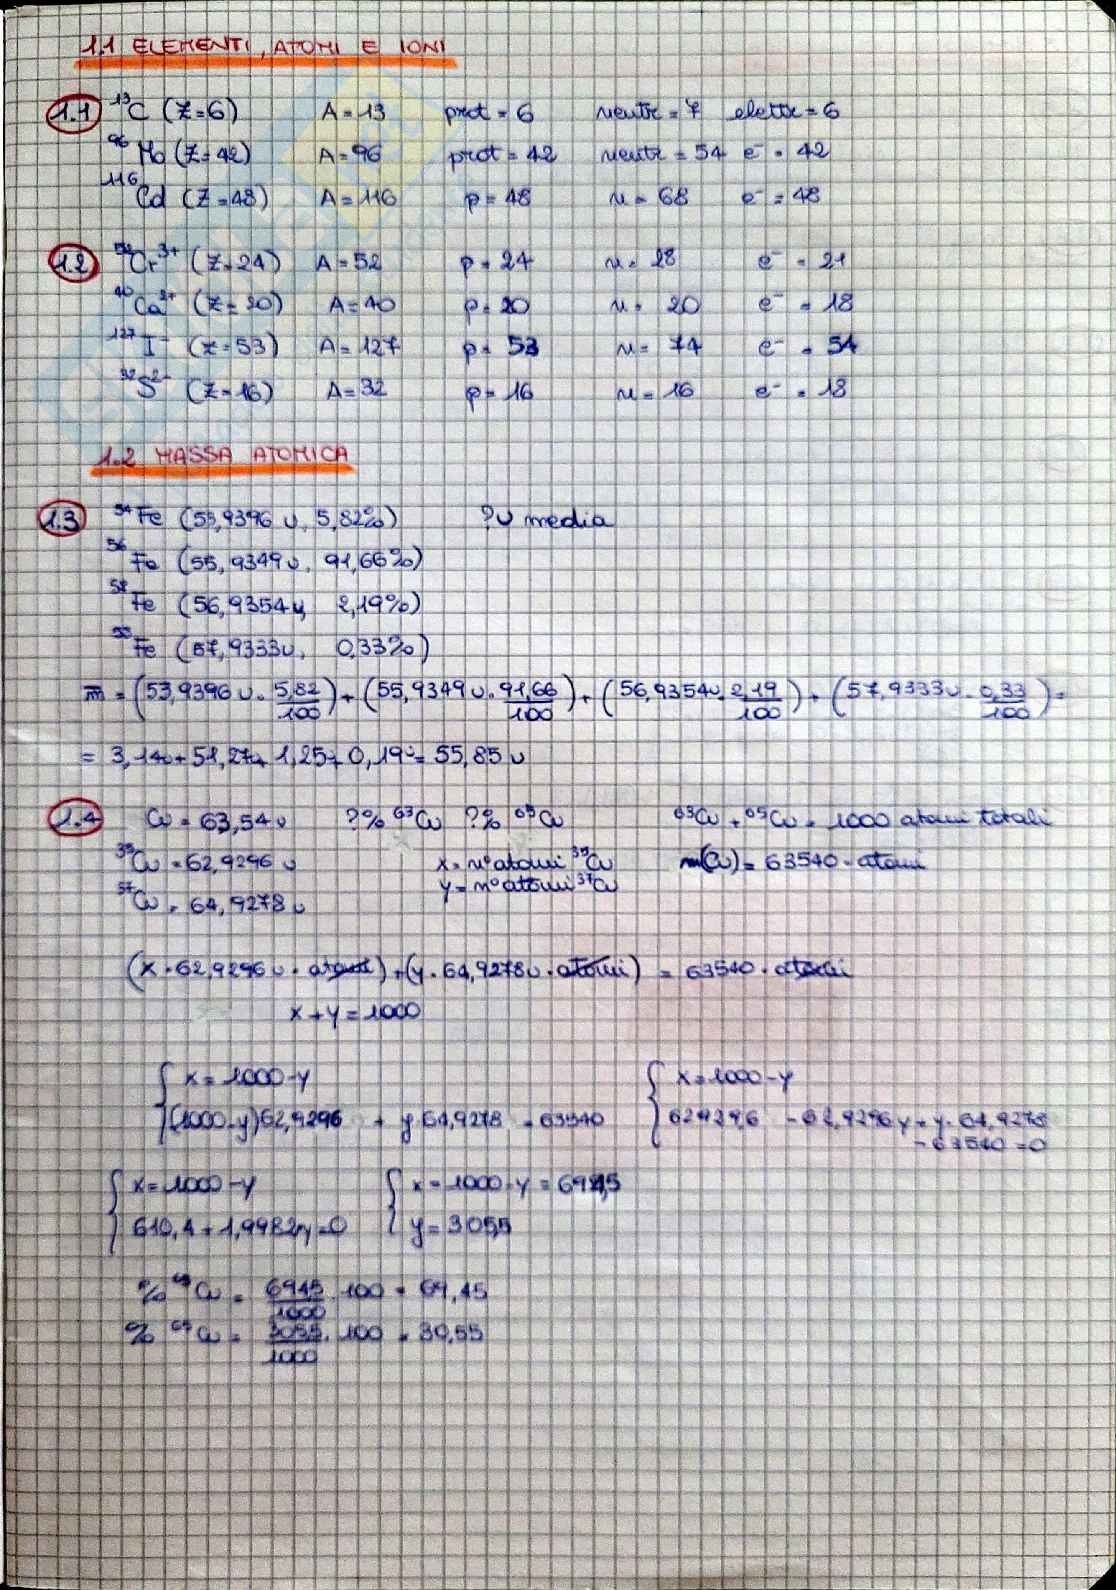 1.1 ELEMENTI, ATOMI E IONI
1.1 ¹³C (Z=6) A=13 prot = 6 neutr = 7 elettr = 6
⁹⁶Mo (Z=42) A=96 prot = 42 neutr = 54 e⁻ = 42
¹¹⁶Cd (Z=48) A=116 p=48 n=68 e⁻=48
1.2 ⁵²Cr³⁺ (Z=24) A=52 p=24 n=28 e⁻=21
⁴⁰Ca²⁺ (Z=20) A=40 p=20 n=20 e⁻=18
¹²⁷I⁻ (Z=53) A=127 p=53 n=74 e⁻=54
³²S²⁻ (Z=16) A=32 p=16 n=16 e⁻=18
1.2 MASSA ATOMICA
1.3 ⁵⁴Fe (53,9396 u, 5,82%) ?u media
⁵⁶Fe (55,9349u, 91,66%)
⁵⁸Fe (56,9354u, 2,19%)
Fe (57,9333u, 0,33%)
m̅ = (53,9396 u · 5,82/100) + (55,9349 u · 91,66/100) + (56,9354u · 2,19/100) + (57,9333u · 0,33/100) =
= 3,14u + 51,27u + 1,25+ 0,19 = 55,85 u
1.4 Cu = 63,54u ?% ⁶³Cu ?% ⁶⁵Cu ⁶³Cu + ⁶⁵Cu = 1000 atomi totali
³⁵Cu = 62,9296 u x = n° atomi ³⁵Cu m(Cu) = 63540 · atomi
³⁷Cu = 64,9278 u y = n° atomi ³⁷Cu
(x · 62,9296 u · atomi) + (y · 64,9278u · atomi) = 63540 · atomi
x + y = 1000
{ x = 1000-y { x = 1000-y
(1000-y)62,9296 + y 64,9278 = 63540 62929,6 - 62,9296y + y · 64,9278
- 63540 = 0
{ x = 1000-y { x = 1000-y = 694,5
610,4 + 1,9982y = 0 y = 305,5
% ⁶³Cu = 694,5/1000 · 100 = 69,45
% ⁶⁵Cu = 305,5/1000 · 100 = 30,55